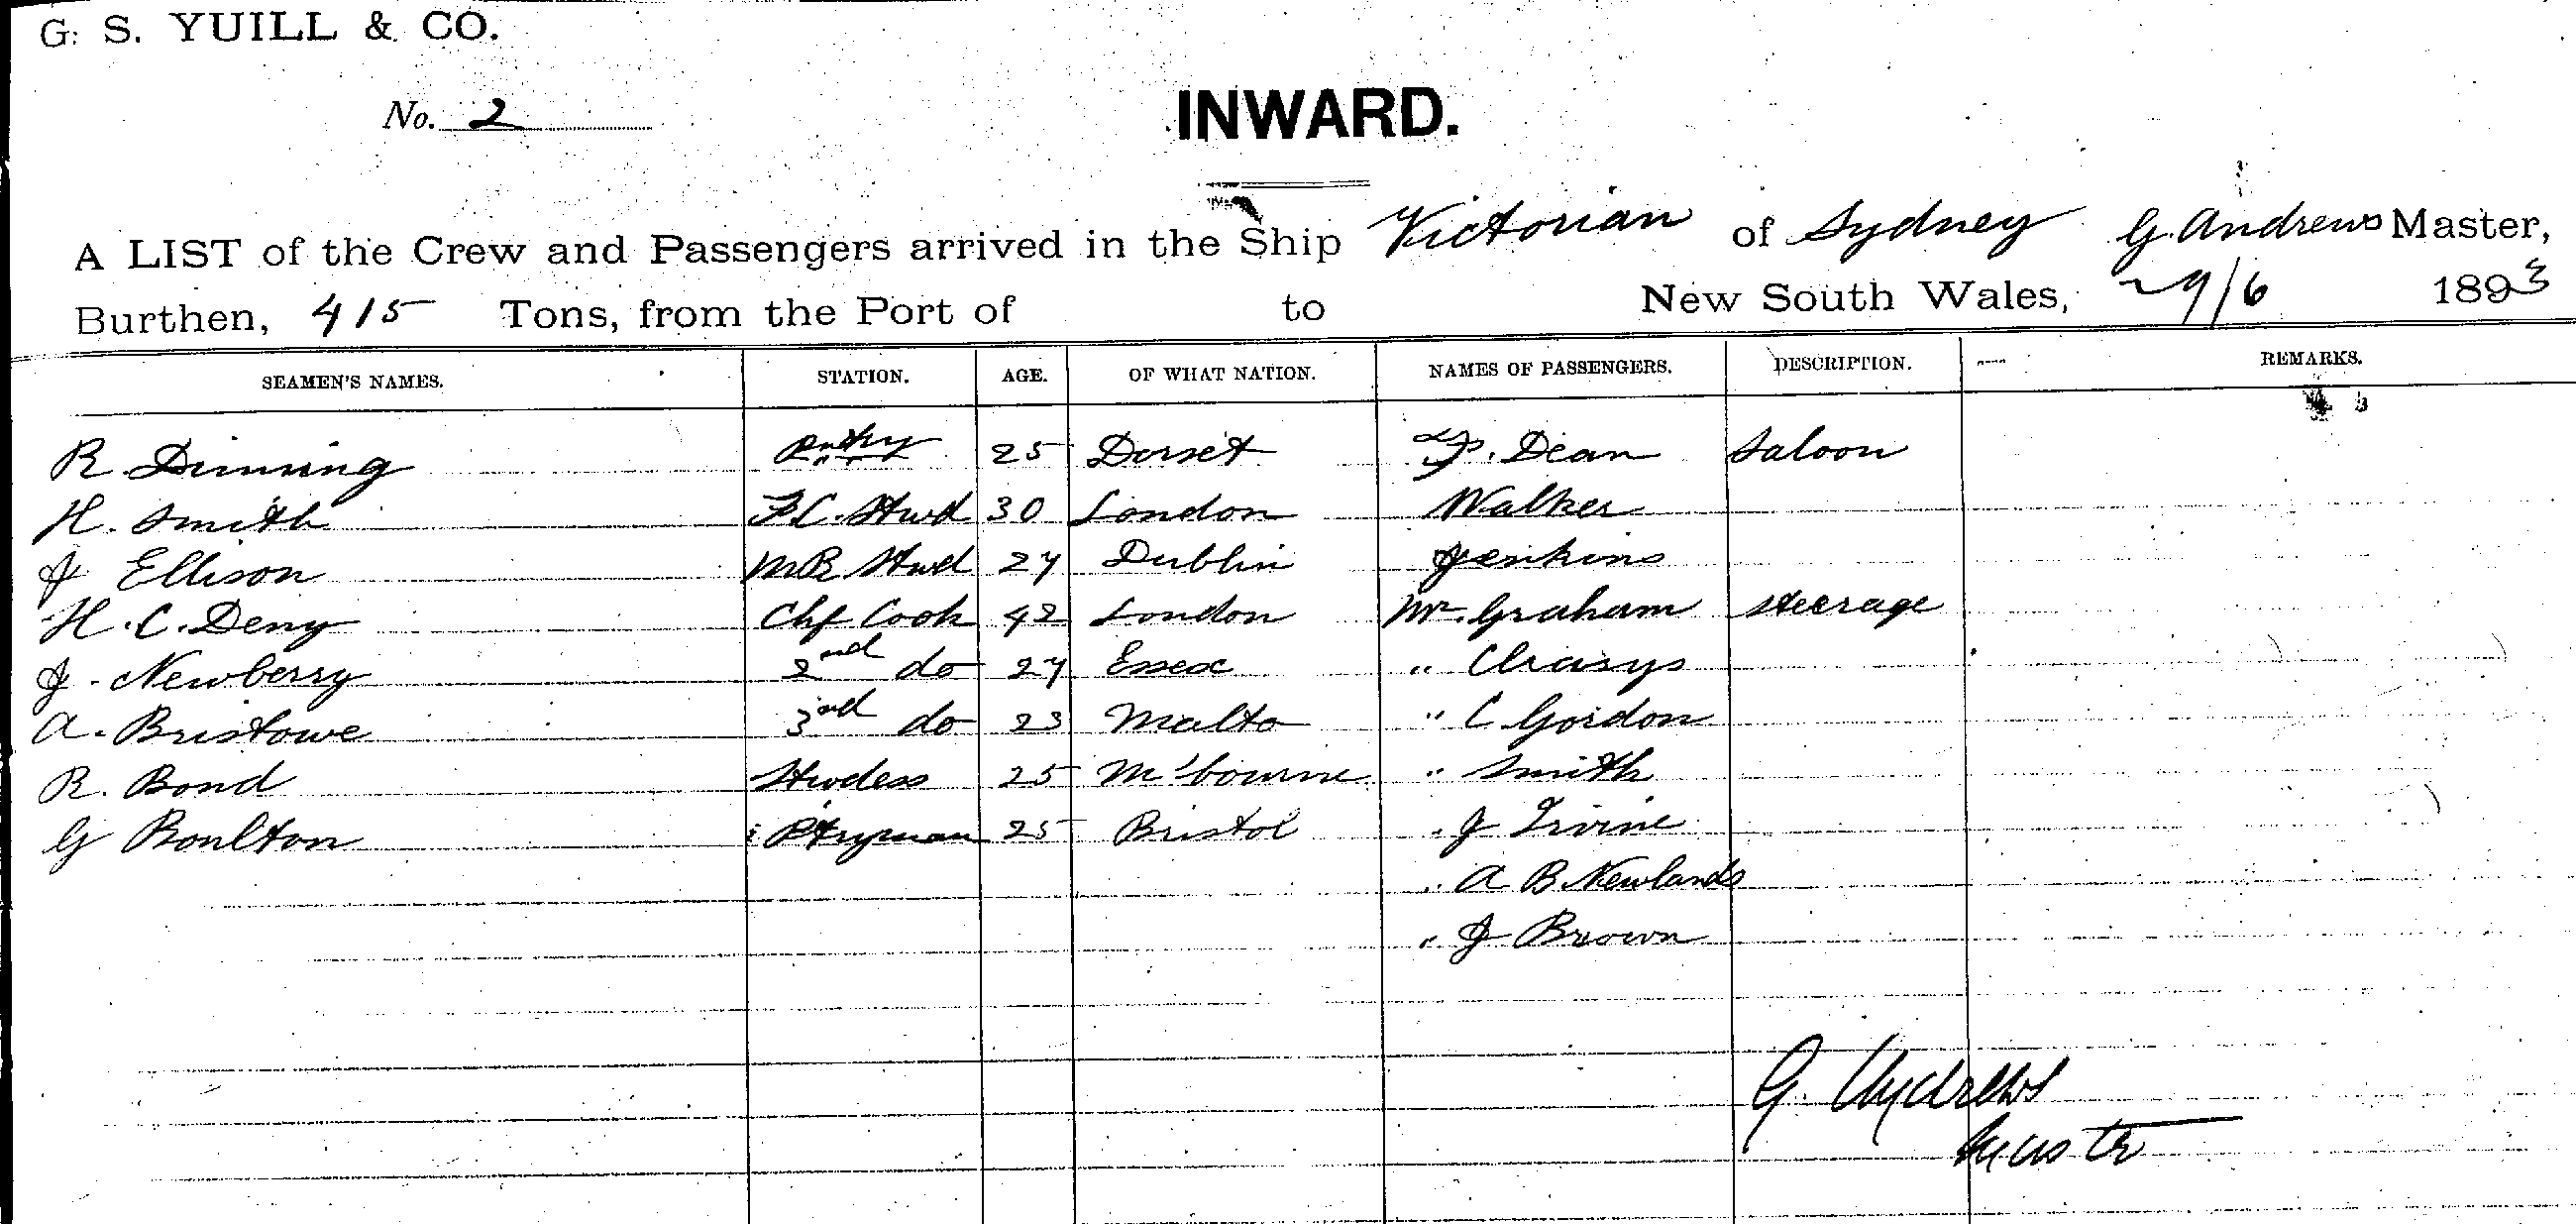 G. S. YUILL & CO.
No. 2
INWARD.
A LIST of the Crew and Passengers arrived in the Ship Victorian of Sydney G. Andrews Master,
Burthen, 415 Tons, from the Port of to New South Wales, 29/6 1893
SEAMEN'S NAMES. STATION. AGE. OF WHAT NATION. NAMES OF PASSENGERS. DESCRIPTION. REMARKS.
R. Dinning 25 Dorset F. Dean Saloon
H. Smith F.C. Stwd 30 London Walker
J Ellison M R Stwd 27 Dublin Jenkins
H. C. Deny Chf Cook 42 London Mr. Graham Steerage
J. Newberry 2nd do 27 Essex "
A. Bristowe 3rd do 23 Malta " C Gordon
R. Bond Stwdess 25 M'bourne " Smith
G Boulton Ptryman 25 Bristol " J Irvine
" A B Newlands
" J Brown
G. Andrews
Master